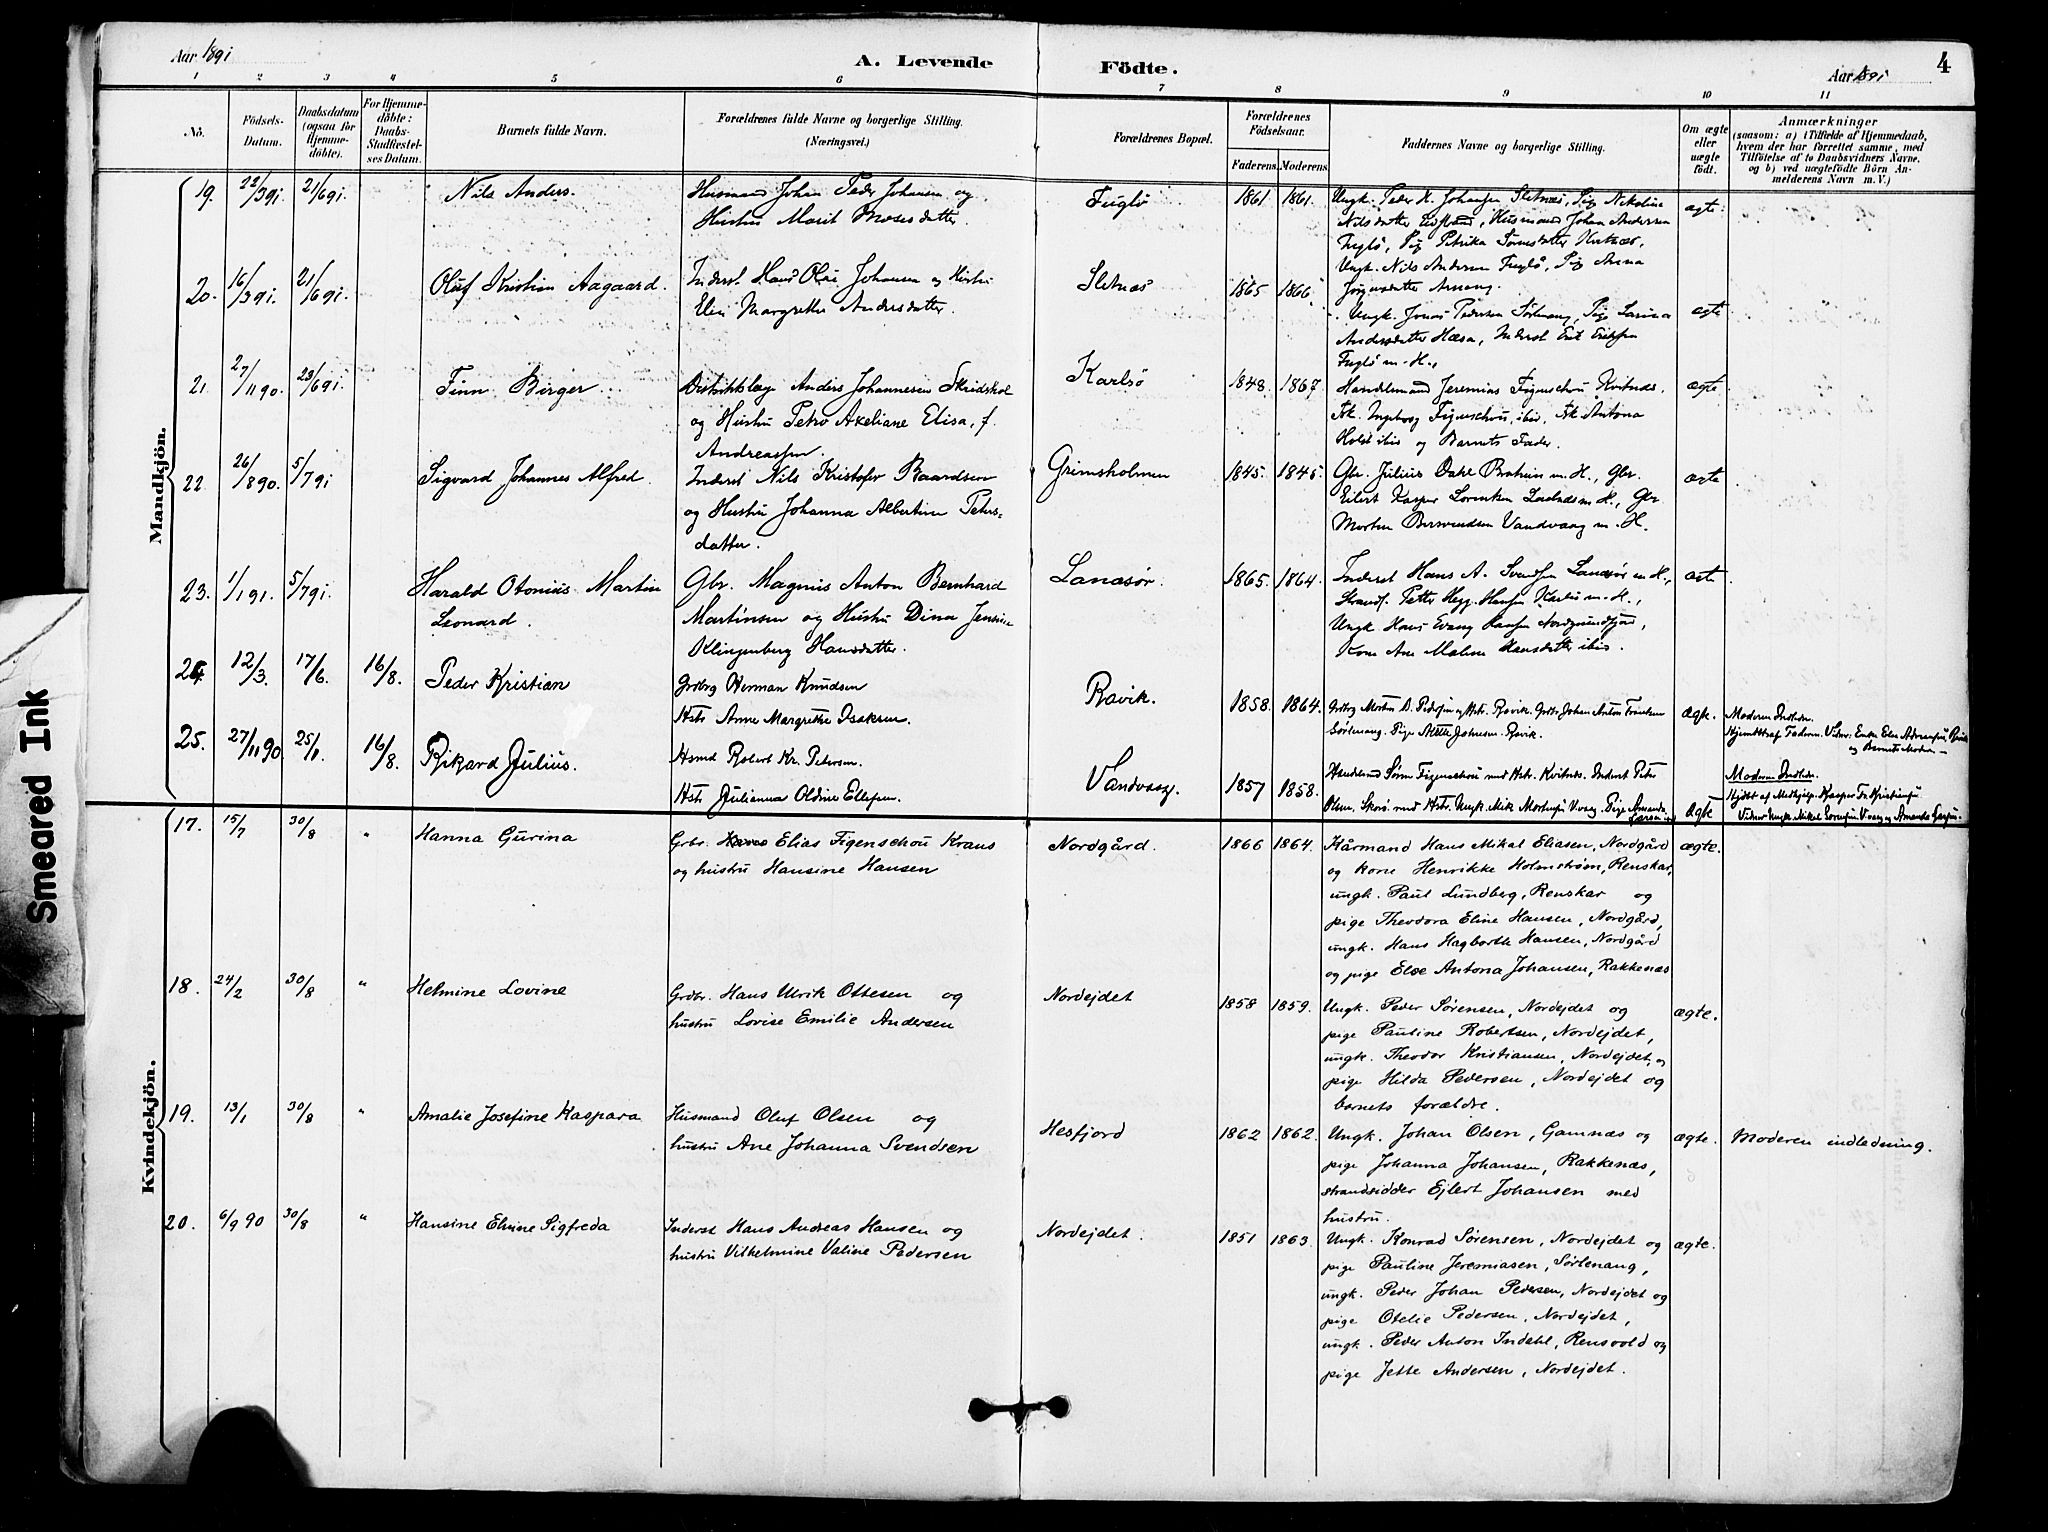 Aar 1891
A. Levende
Födte.
Aar 1891
4
1 2 3 4 5 6 7 8 9 10 11
No.
Födsels-
Datum.
Daabsdatum
(ogsaa for
Hjemme-
döbte).
For Hjemme-
döbte:
Daabs-
Stadfæstel-
ses Datum.
Barnets fulde Navn.
Forældrenes fulde Navne og borgerlige Stilling.
(Næringsvei.)
Forældrenes Bopæl.
Forældrenes
Födselsaar.
Faderens. Moderens.
Faddernes Navne og borgerlige Stilling.
Om ægte
eller
uægte
födt.
Anmærkninger
(saasom: a) i Tilfælde af Hjemmedaab,
hvem der har forrettet samme, med
Tilföielse af to Daabsvidners Navne,
og b) ved uægtefödte Börn An-
melderens Navn m. V.)
Smeared Ink
Mandkjön.
19. 22/3 91. 21/6 91. Nils Anders.
Husmand Johan Peder Johansen og
Hustru Marit Mosesdatter.
Fuglö
1861 1861.
Ungk. Peder H. Johansen Sletnæs, Pig Nikoline
Nilsdatter, Husmand Johan Andersen
Fuglö, Pig Petrika
Ungk. Nils Andersen Fuglö, Pig Anna
ægte
20. 16/3 91. 21/6 91. Oluf Kristian Aagaard.
Inderst Hans Olai Johansen og Hustru
Elen Margrethe Andersdatter.
Sletnæs
1865 1866.
Ungk. Jonas Pedersen Sørlenang, Pige Larina
Andersdatter Hæsa, Inderst Erik Eriksen
Fuglö m. H.
ægte
21. 27/11 90. 23/6 91. Finn Birger
Distriktslæge Anders Johannesen Skridshol
og Hustru Petra Axeliane Elisa, f.
Andreassen.
Karlsö
1848. 1867.
Handelsmand Jeremias Figenschou Kvitnæs.
Frk. Ingeborg Figenschou, ibid, Frk Antona
Holst ibid og Barnets Fader.
ægte
22 26/8 90. 5/7 91 Sigvard Johannes Alfred.
Inderst Nils Kristofer Baardsen
og Hustru Johanna Albertine Peters-
datter.
Grimsholmen
1845. 1845.
Gbr. Julius Dahl m. H., Gbr.
Eilert Kasper Lorentsen m. H., Gbr
Morten Berventsen Vandvaag m. H.
ægte
23. 1/1 91. 5/7 91. Harald Otonius Martin
Leonard.
Gbr. Magnus Anton Bernhard
Martinsen og Hustru Dina Jensine
Klingenberg Hansdatter.
Lanæsör.
1865. 1864.
Inderst Hans A. Svendsen Lanæsör m. H.,
Strands. Petter Hegg-Hansen Karlsö m. H.,
Ungk Hans Evang Hansen
Kone Ane Malene Hansdatter ibid.
ægte
24. 12/3. 17/6. 16/8. Peder Kristian
Grdbrg Herman Knudsen
Hstr Anne Margrethe Isaksen.
Ravik.
1858. 1864.
Grdbrg Morten D. Pedersen og Hstr. Ravik. Grdbr Johan Anton
Sørlenang. Pige Mette Johnsen Ravik.
ægte.
Moderen Indledn.
Hjemdöbt af Faderen. Vidner: Enke Elen
og Barnets Moder
25. 27/11 90. 25/1. 16/8. Rikard Julius.
Hsmd Robert Kr. Petersen.
Hstr. Julianna Oldine Ellefsen.
Vandvaag.
1857 1858.
Handelsmd Sören Figenschou med Hstr. Kvitnæs. Inderst Peter
Olsen Skorö med Hstr. Ungk. Mik. Mortensen Vvaag. Pige Amanda
ægte
Moderen Indledn.
Hjdöbt af Medhjelp. Kasper Fr. Kristiansen
Vidner Ungk. Mikal Vvaag og Amanda
Kvindekjön.
17. 15/7 30/8 " Hanna Gurina
Grbr. Elias Figenschou Kraus
og hustru Hansine Hansen
Nordgård.
1866 1864.
Kårmand Hans Mikal Eliasen, Nordgård
og kone Henrikke Holmstrøm, Renskar,
ungk. Paul Lundberg, Renskar og
pige Theodora Eline Hansen, Nordgård,
ungk. Hans Hagbarth Hansen, Nordgård
og pige Else Antona Johansen, Rakkenæs
ægte.
18. 24/2 30/8 " Helmine Lovine
Grdbr. Hans Ulrik Ottesen og
hustru Lovise Emilie Andersen
Nordejdet
1858 1859.
Ungk. Peder Sørensen, Nordejdet og
pige Pauline Robertsen, Nordejdet,
ungk. Theodor Kristiansen, Nordejdet, og
pige Hilda Pedersen, Nordejdet og
barnets forældre.
ægte.
19. 13/1 30/8 " Amalie Josefine Kaspara
Husmand Oluf Olsen og
hustru Ane Johanna Svendsen
Hesfjord
1862 1862.
Ungk. Johan Olsen, Gamnæs og
pige Johanna Johansen, Rakkenæs,
strandsidder Ejlert Johansen med
hustru.
ægte. Moderen indledning.
20. 6/9 90 30/8 " Hansine Elvine Sigfreda
Inderst Hans Andreas Hansen og
hustru Vilhelmine Valine Pedersen
Nordejdet.
1851 1863.
Ungk. Konrad Sørensen, Nordejdet og
pige Pauline Jeremiasen, Sørlenang,
ungk. Peder Johan Pedersen, Nordejdet og
pige Otelie Pedersen, Nordejdet,
ungk. Peder Anton Indahl, Rensvold og
pige Jette Andersen, Nordejdet.
ægte.